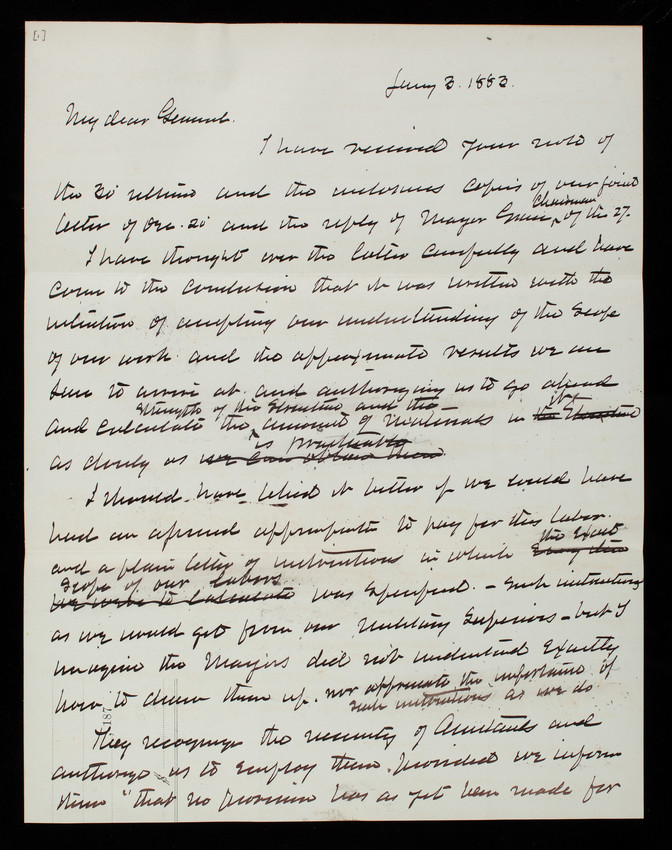 [1]
Jany 3. 1883.
My dear General.
I have received your note of
the 30' ultimo and the inclosures copies of our joint
letter of Dec. 20' and the reply of Mayor Grace, Chairman, of the 27.
I have thought over the latter carefully and have
come to the conclusion that it was written with the
intention of accepting our understanding of the scope
of our work and the approximate results we are
sure to arrive at and authorizing us to go ahead
and calculate the strength of the structure and the amount of materials in it the structure
as closely as is practicable we can obtain them
I should have liked it better if we could have
had an appropriation to pay for this labor.
and a plain letter of instructions in which the exact
scope of our labors we were to calculate was specified. - Such instructions
as we would get from our Military Superiors - but I
imagine the Mayors did not understand exactly
how to draw them up. nor appreciate the importance of
such instructions as we do
They recognize the necessity of Assistants and
authorize us to employ them. Provided we inform
them "that no provision has as yet been made for
187